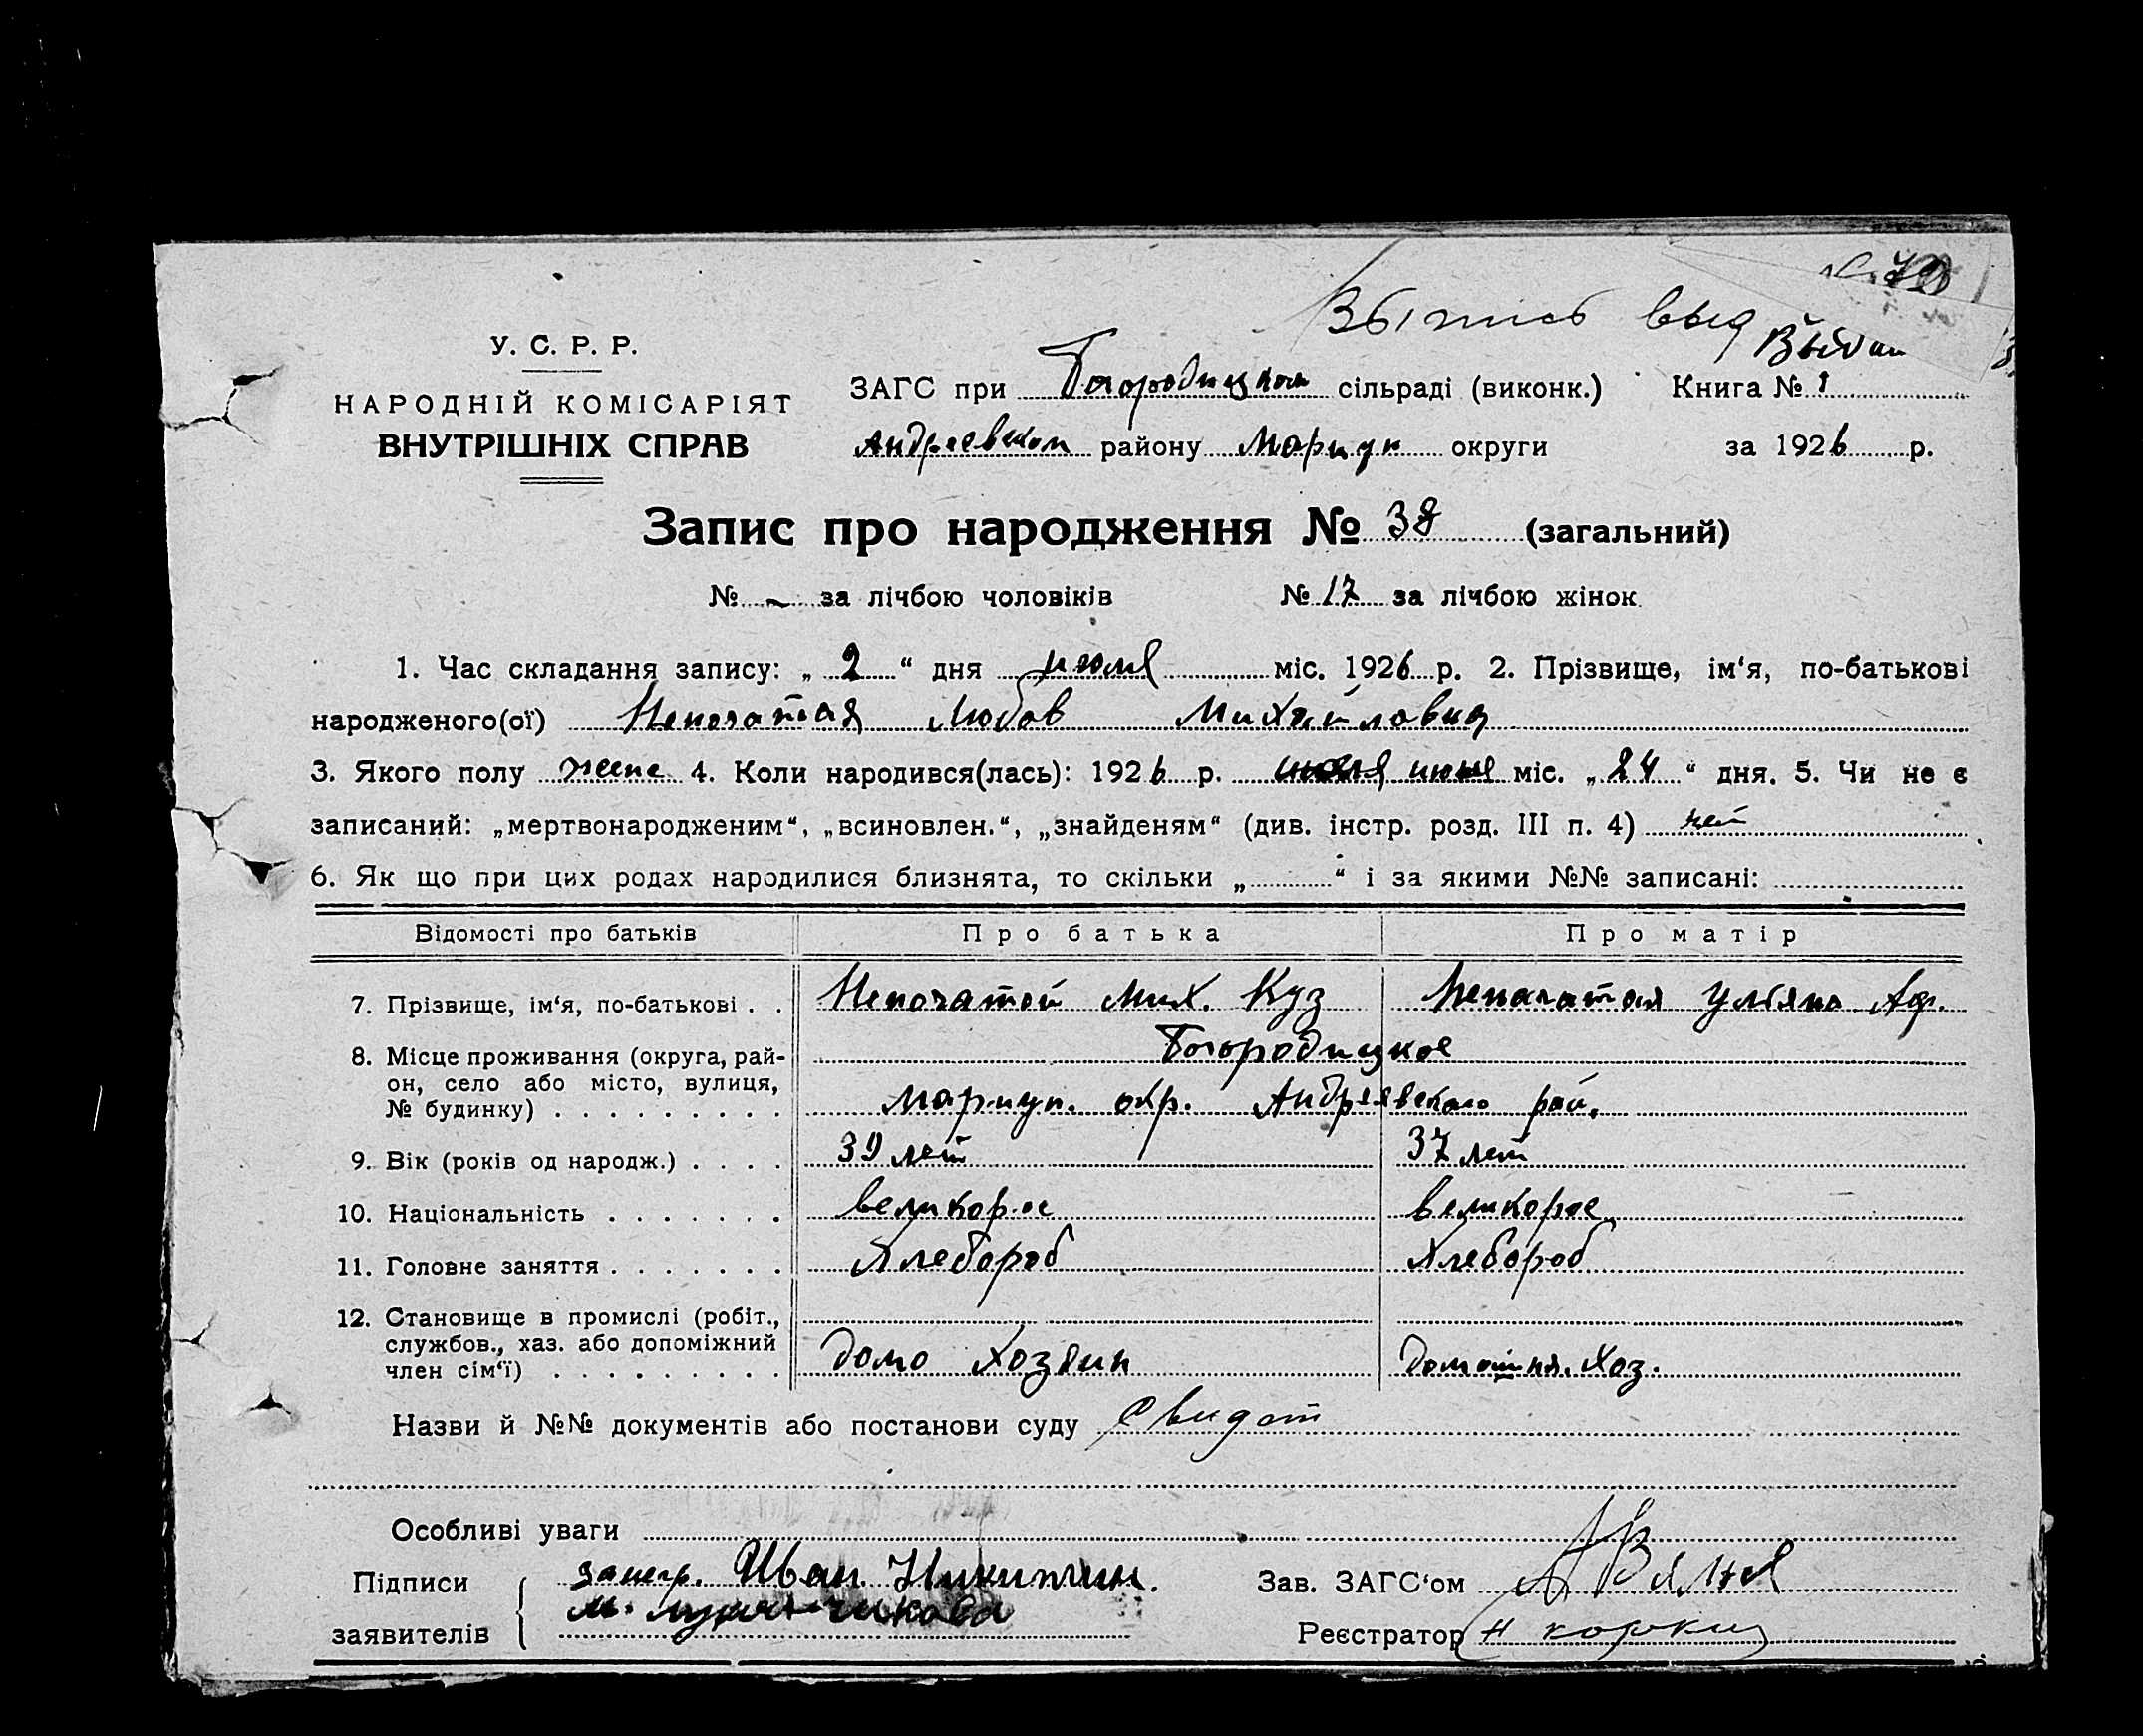 Выпись выд
Выдан
У. С. Р. Р.
НАРОДНІЙ КОМІСАРІЯТ
ВНУТРІШНІХ СПРАВ
ЗАГС при Богородицком сільраді (виконк.) Книга № 1
Андреевском району Мариуп округи за 1926 р.
Запис про народження № 38 (загальний)
№ - за лічбою чоловіків № 17 за лічбою жінок
1. Час складання запису: „2“ дня июля міс. 1926 р. 2. Прізвище, ім‘я, по-батькові
народженого(ої) Непочатая Любов Михайловна
3. Якого полу женс 4. Коли народився(лась): 1926 р. июня міс. „24“ дня. 5. Чи не є
записаний: „мертвонародженим“, „всиновлен.“, „знайденям“ (див. інстр. розд. III п. 4) нет
6. Як що при цих родах народилися близнята, то скільки „ “ і за якими №№ записані:
Відомості про батьків Про батька Про матір
7. Прізвище, ім‘я, по-батькові . . Непочатой Мих. Куз Непочатая Ульяна Аф.
8. Місце проживання (округа, рай-
он, село або місто, вулиця,
№ будинку) . . . . . . . . .
Богородицкое
Мариуп. окр. Андреевского рай.
9. Вік (років од народж.) . . . . 39 лет 37 лет
10. Національність . . . . . . . великорос великорос
11. Головне заняття . . . . . . . Хлебороб Хлебороб
12. Становище в промислі (робіт.,
службов., хаз. або допоміжний
член сім‘ї) . . . . . . . . .
домо Хозяин домашня. Хоз.
Назви й №№ документів або постанови суду
Особливі уваги
Підписи Иван Никитин.
заявителів
Зав. ЗАГС‘ом
Реєстратор